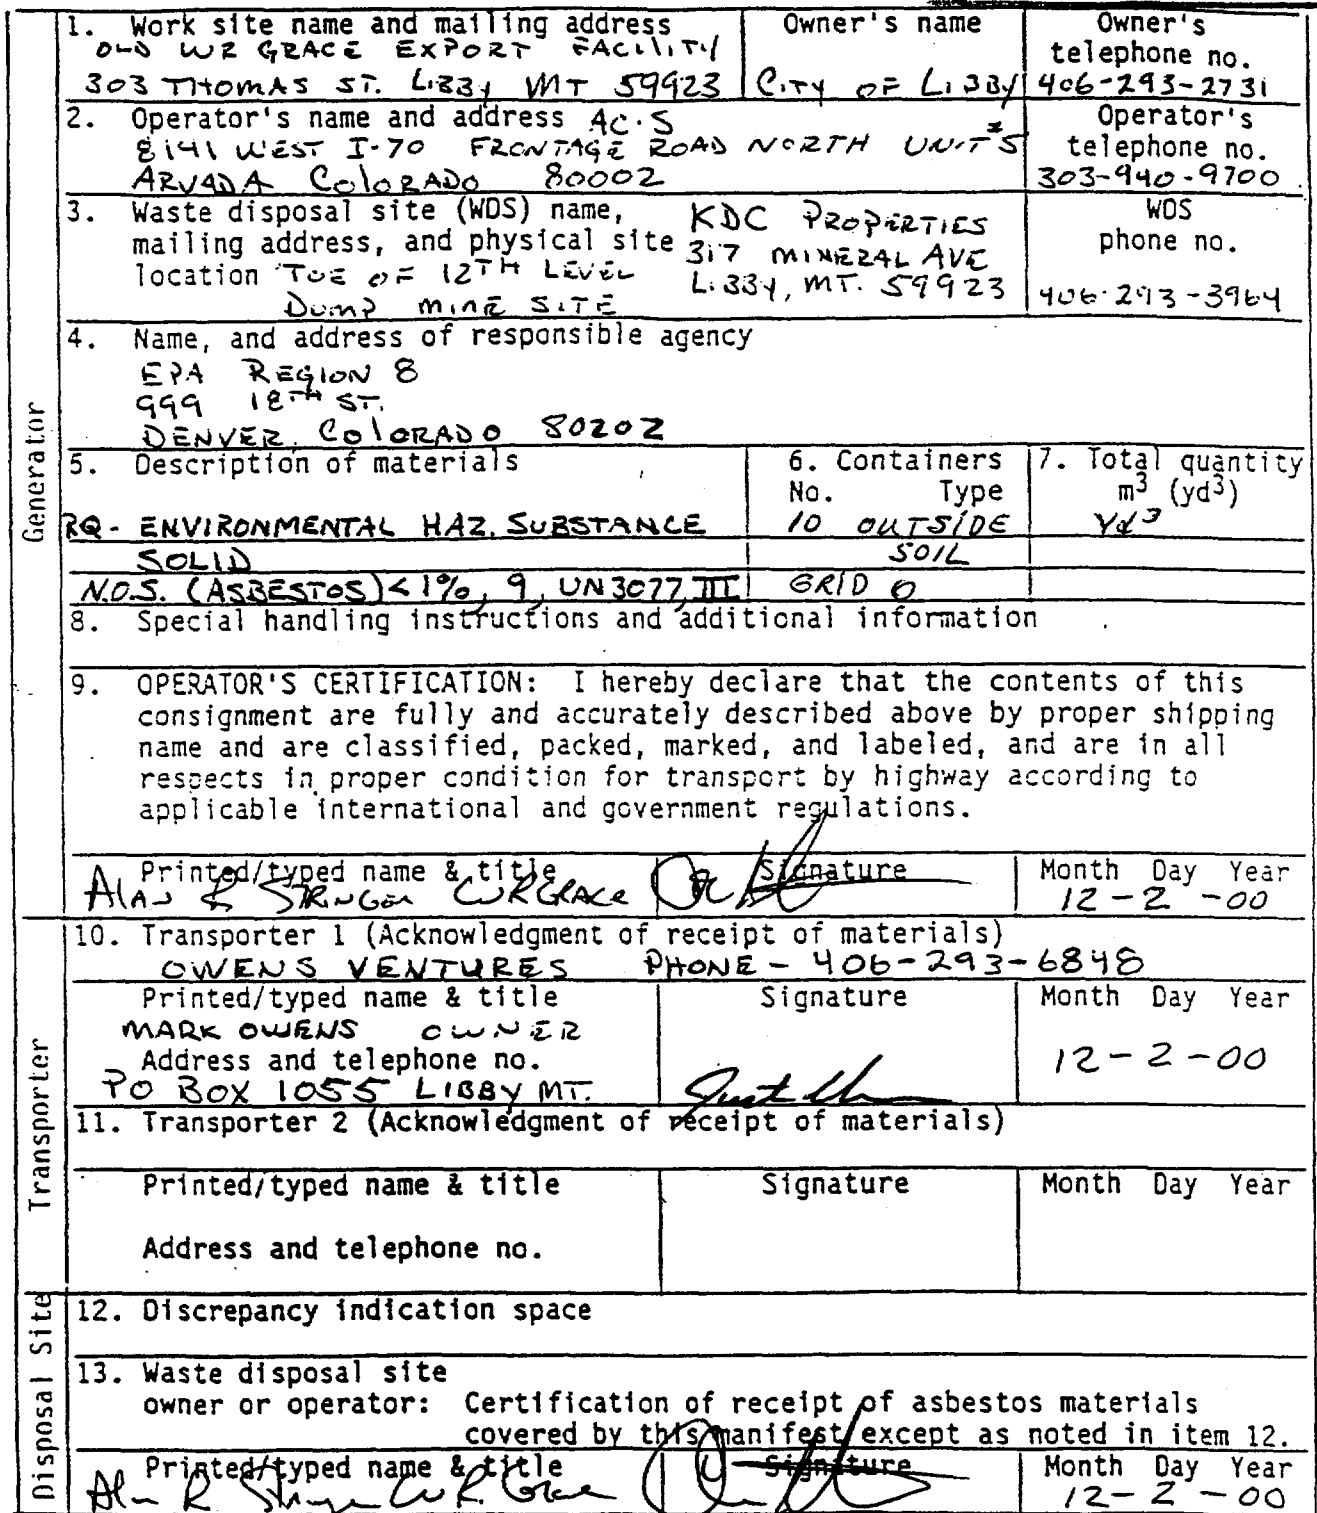 1. Work site name and mailing address
OLD WR GRACE EXPORT FACILITY
303 THOMAS ST. LIBBY MT 59923
Owner's name
CITY OF LIBBY
Owner's
telephone no.
406-293-2731
2. Operator's name and address AC·S
8141 WEST I-70 FRONTAGE ROAD NORTH UNIT #5
ARVADA COLORADO 80002
Operator's
telephone no.
303-940-9700
3. Waste disposal site (WDS) name,
mailing address, and physical site
location TOE OF 12TH LEVEL
DUMP MINE SITE
KDC PROPERTIES
317 MINERAL AVE
LIBBY, MT. 59923
WDS
phone no.
406-293-3964
4. Name, and address of responsible agency
EPA REGION 8
999 18TH ST.
DENVER, COLORADO 80202
Generator
5. Description of materials
6. Containers
No. Type
7. Total quantity
m³ (yd³)
RQ - ENVIRONMENTAL HAZ. SUBSTANCE
10 OUTSIDE
Yd³
SOLID
SOIL
N.O.S. (ASBESTOS) < 1%, 9, UN3077, III
GRID O
8. Special handling instructions and additional information
9. OPERATOR'S CERTIFICATION: I hereby declare that the contents of this
consignment are fully and accurately described above by proper shipping
name and are classified, packed, marked, and labeled, and are in all
respects in proper condition for transport by highway according to
applicable international and government regulations.
Printed/typed name & title
Alan R Stringer WR Grace
Signature
Month Day Year
12-2-00
10. Transporter 1 (Acknowledgment of receipt of materials)
OWENS VENTURES PHONE - 406-293-6848
Printed/typed name & title
MARK OWENS OWNER
Address and telephone no.
PO BOX 1055 LIBBY MT.
Signature
Month Day Year
12-2-00
Transporter
11. Transporter 2 (Acknowledgment of receipt of materials)
Printed/typed name & title
Signature
Month Day Year
Address and telephone no.
Disposal Site
12. Discrepancy indication space
13. Waste disposal site
owner or operator: Certification of receipt of asbestos materials
covered by this manifest except as noted in item 12.
Printed/typed name & title
Alan R. Stringer W.R. Grace
Signature
Month Day Year
12-2-00